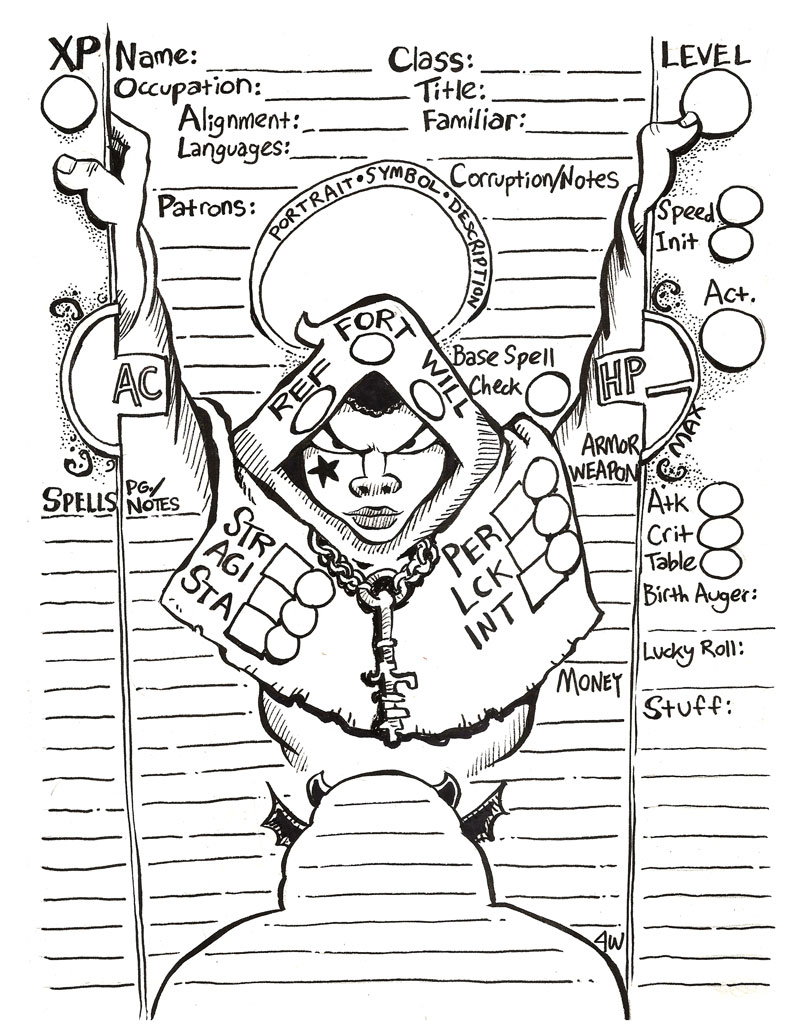 XP Name: Class: LEVEL
Occupation: Title:
Alignment: Familiar:
Languages:
PORTRAIT • SYMBOL • DESCRIPTION
Corruption/Notes
Patrons:
Speed
Init
Act.
REF FORT WILL
Base Spell
Check
AC
HP
MAX
ARMOR
WEAPON
SPELLS PG./
NOTES
Atk
Crit
Table
STR
AGI
STA
PER
LCK
INT
Birth Auger:
Lucky Roll:
MONEY
Stuff:
4W